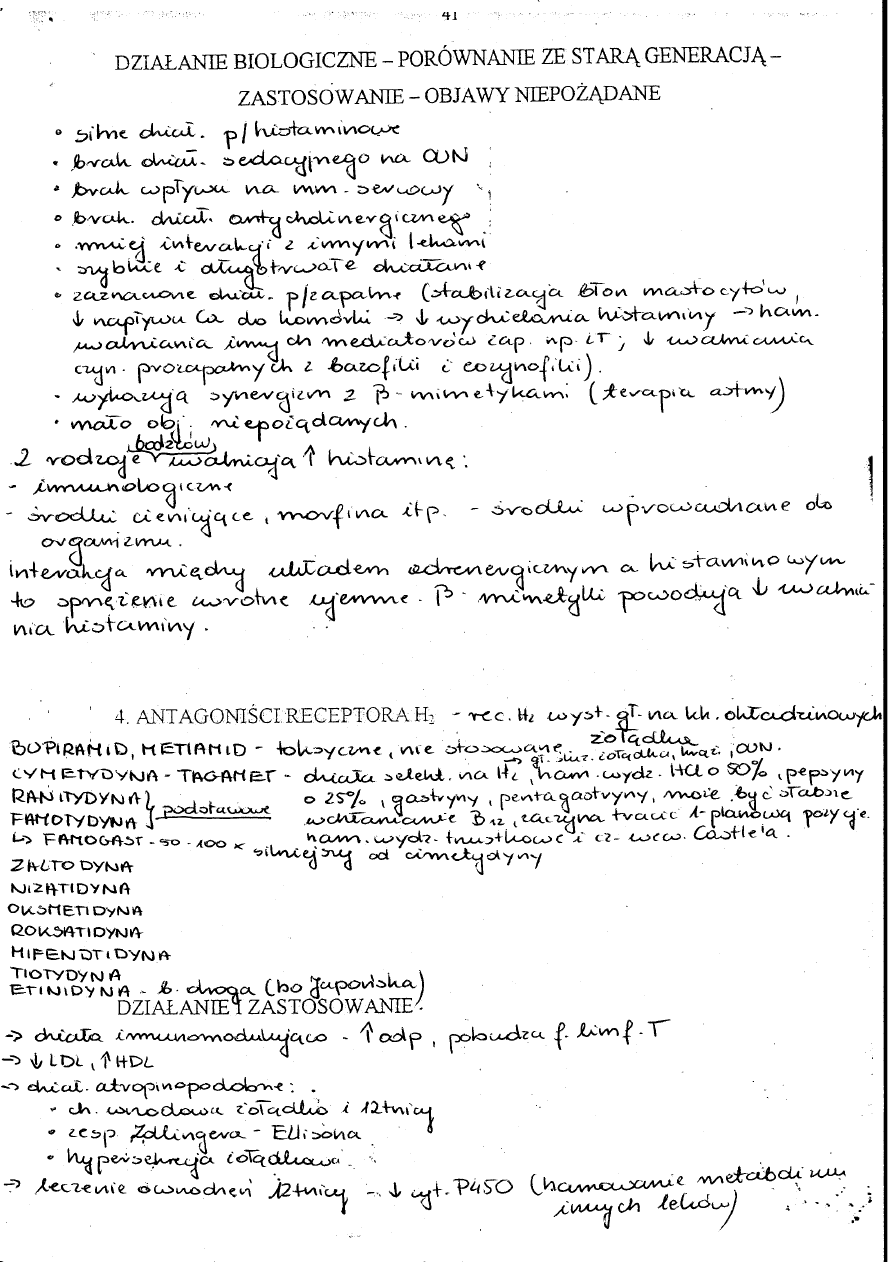 41
DZIAŁANIE BIOLOGICZNE – PORÓWNANIE ZE STARĄ GENERACJĄ –
ZASTOSOWANIE – OBJAWY NIEPOŻĄDANE
• silne dział. p/histaminowe
• brak dział. sedacyjnego na OUN
• brak wpływu na mm. sercowy
• brak. dział. antycholinergicznego
• mniej interakcji z innymi lekami
• szybkie i długotrwałe działanie
• zaznaczone dział. p/zapalne (stabilizacja błon mastocytów,
↓ napływu Ca do komórki → ↓ wydzielania histaminy → ham.
uwalniania innych mediatorów zap. np. LT; ↓ uwalniania
czyn. prozapalnych z bazofilii i eozynofilii).
• wykazują synergizm z β-mimetykami (terapia astmy)
• mało obj. niepożądanych.
bodźców
2 rodzaje uwalniają ↑ histaminę:
- immunologiczne
- środki cieniujące, morfina itp. - środki wprowadzane do
organizmu.
Interakcja między układem adrenergicznym a histaminowym
to sprzężenie zwrotne ujemne. β-mimetyki powodują ↓ uwalnia
nia histaminy.
4. ANTAGONIŚCI RECEPTORA H₂ - rec. H₂ wyst. gł. na kk. okładzinowych
żołądka
BUPIRAMID, METIAMID - toksyczne, nie stosowane
→ gł. śluz. żołądka, krąż., OUN.
CYMETYDYNA - TAGAMET - działa selekt. na H₂, ham. wydz. HCl o 50%, pepsyny
RANITYDYNA } o 25%, gastryny, pentagastryny, może być słabsze
FAMOTYDYNA } podstawowe wchłanianie B₁₂, zaczyna tracić 1-planową pozycje.
↳ FAMOGAST - 50 - 100 x silniejszy od cimetydyny
ham. wydz. trzustkowe i cz. wew. Castle'a.
ZALTODYNA
NIZATIDYNA
OKSMETIDYNA
ROKSATIDYNA
MIFENDTIDYNA
TIOTYDYNA
ETINIDYNA - b. droga (bo Japońska)
DZIAŁANIE I ZASTOSOWANIE
→ działa immunomodulująco - ↑ odp, pobudza f. limf. T
→ ↓ LDL, ↑ HDL
→ dział. atropinopodobne:
• ch. wrzodowa żołądka i 12tnicy
• zesp. Zollingera - Ellisona
• hypersekrecja żołądkowa
→ leczenie owrzodzeń 12tnicy - ↓ cyt. P450 (hamowanie metabolizmu
innych leków)